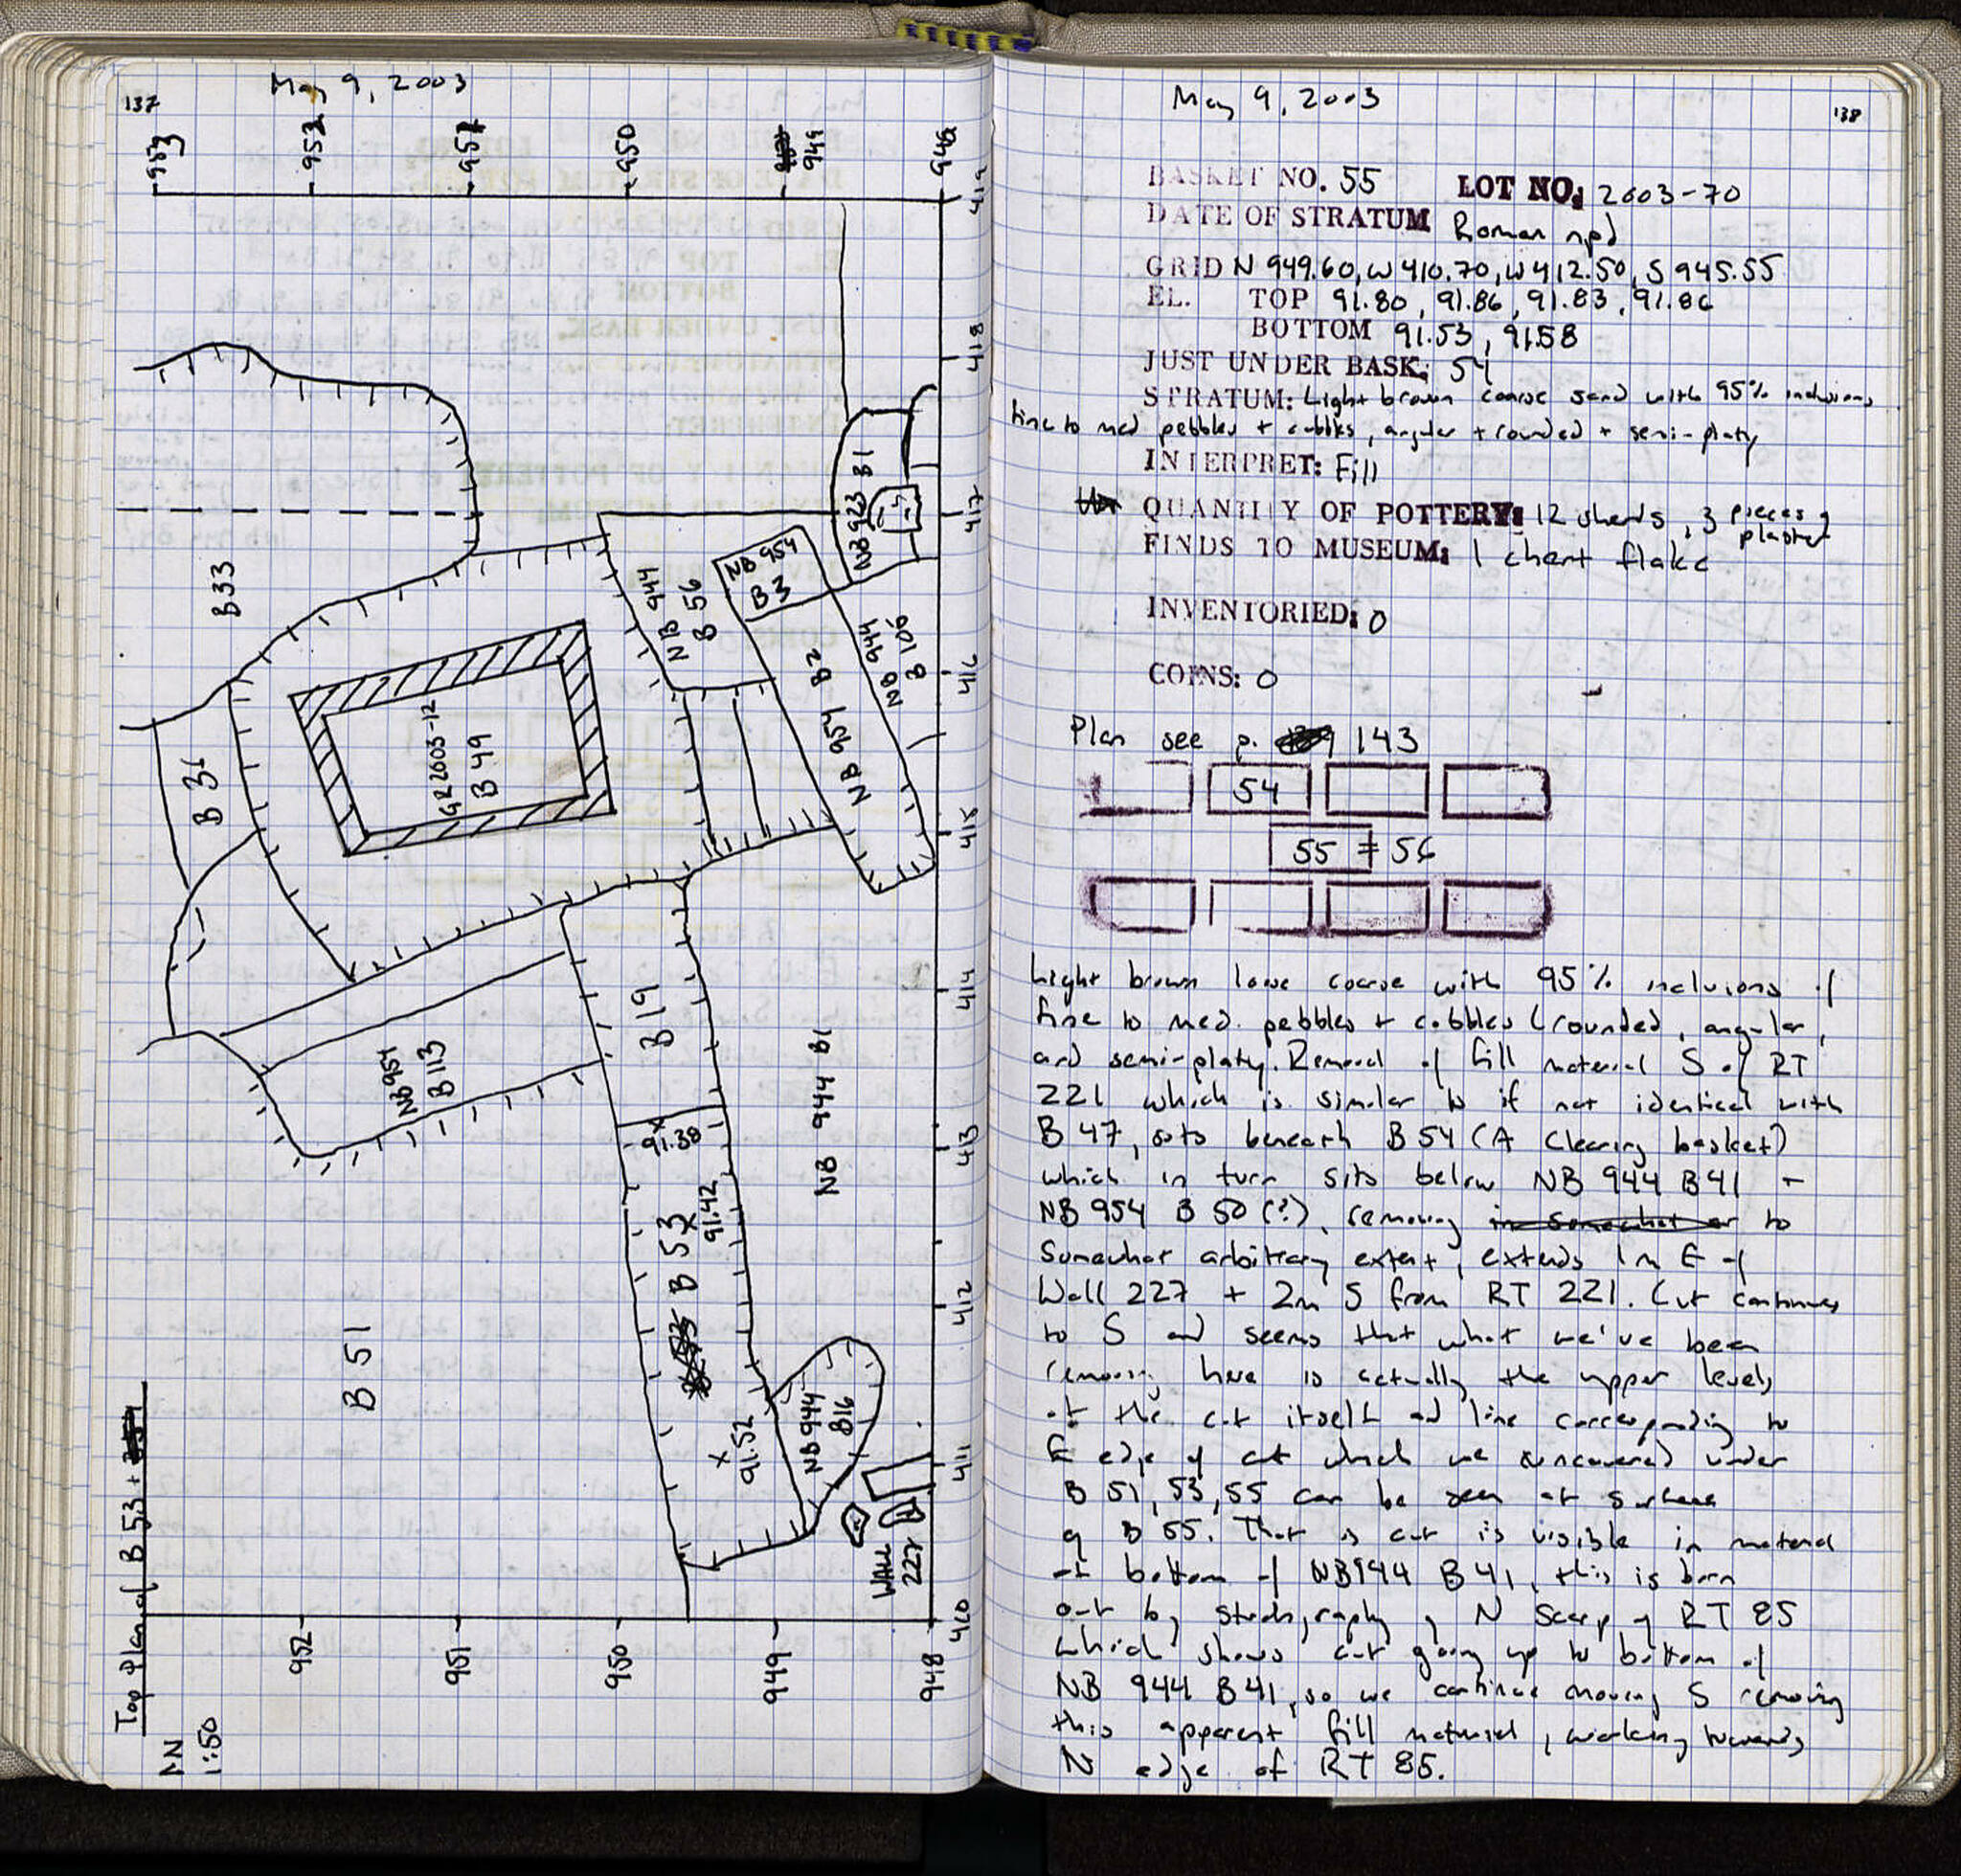 137
May 9, 2003
953
952
951
950
949
948
419
418
417
416
415
414
413
412
411
410
B33
B 31
G2 2003-12
B 49
NB 944
B 56
NB 954
B3
NB 923 B1
NB 944
B 106
NB 954 B2
NB 954
B 113
B 19
91.38
NB 944 B1
B 53
91.42
B 51
91.52
NB 944
B16
WALL
227
952
951
950
949
948
Top Plan of B 53 +
NN
1:50
May 9, 2003
138
BASKET NO. 55 LOT NO: 2003-70
DATE OF STRATUM Roman npd
GRID N 949.60, W 410.70, W 412.50, S 945.55
EL. TOP 91.80, 91.86, 91.83, 91.86
BOTTOM 91.53, 91.58
JUST UNDER BASK: 54
STRATUM: Light brown coarse sand with 95% inclusions
fine to med pebbles + cobbles, angular + rounded + semi-platy
INTERPRET: Fill
QUANTITY OF POTTERY: 12 sherds, 3 pieces of
plaster
FINDS TO MUSEUM: 1 chert flake
INVENTORIED: 0
COINS: 0
Plan see p. 143
54
55 ≠ 56
Light brown loose coarse with 95% inclusions of
fine to med. pebbles + cobbles (rounded, angular,
and semi-platy. Removal of fill material S of RT
221 which is similar to if not identical with
B 47, sits beneath B 54 (A Cleaning basket)
which in turn sits below NB 944 B41 +
NB 954 B 50 (?), removing in somewhat or to
somewhat arbitrary extent, extends 1m E of
Wall 227 + 2m S from RT 221. Cut continues
to S and seems that what we've been
removing here is actually the upper levels
of the cut itself and line corresponding to
E edge of cut which we uncovered under
B 51, 53, 55 can be seen at surface
of B 55. That is cut is visible in material
at bottom of NB944 B 41, this is born
out by stratigraphy of N Scarp of RT 85
which shows cut going up to bottom of
NB 944 B41, so we continue moving S removing
this apparent fill material, working towards
N edge of RT 85.